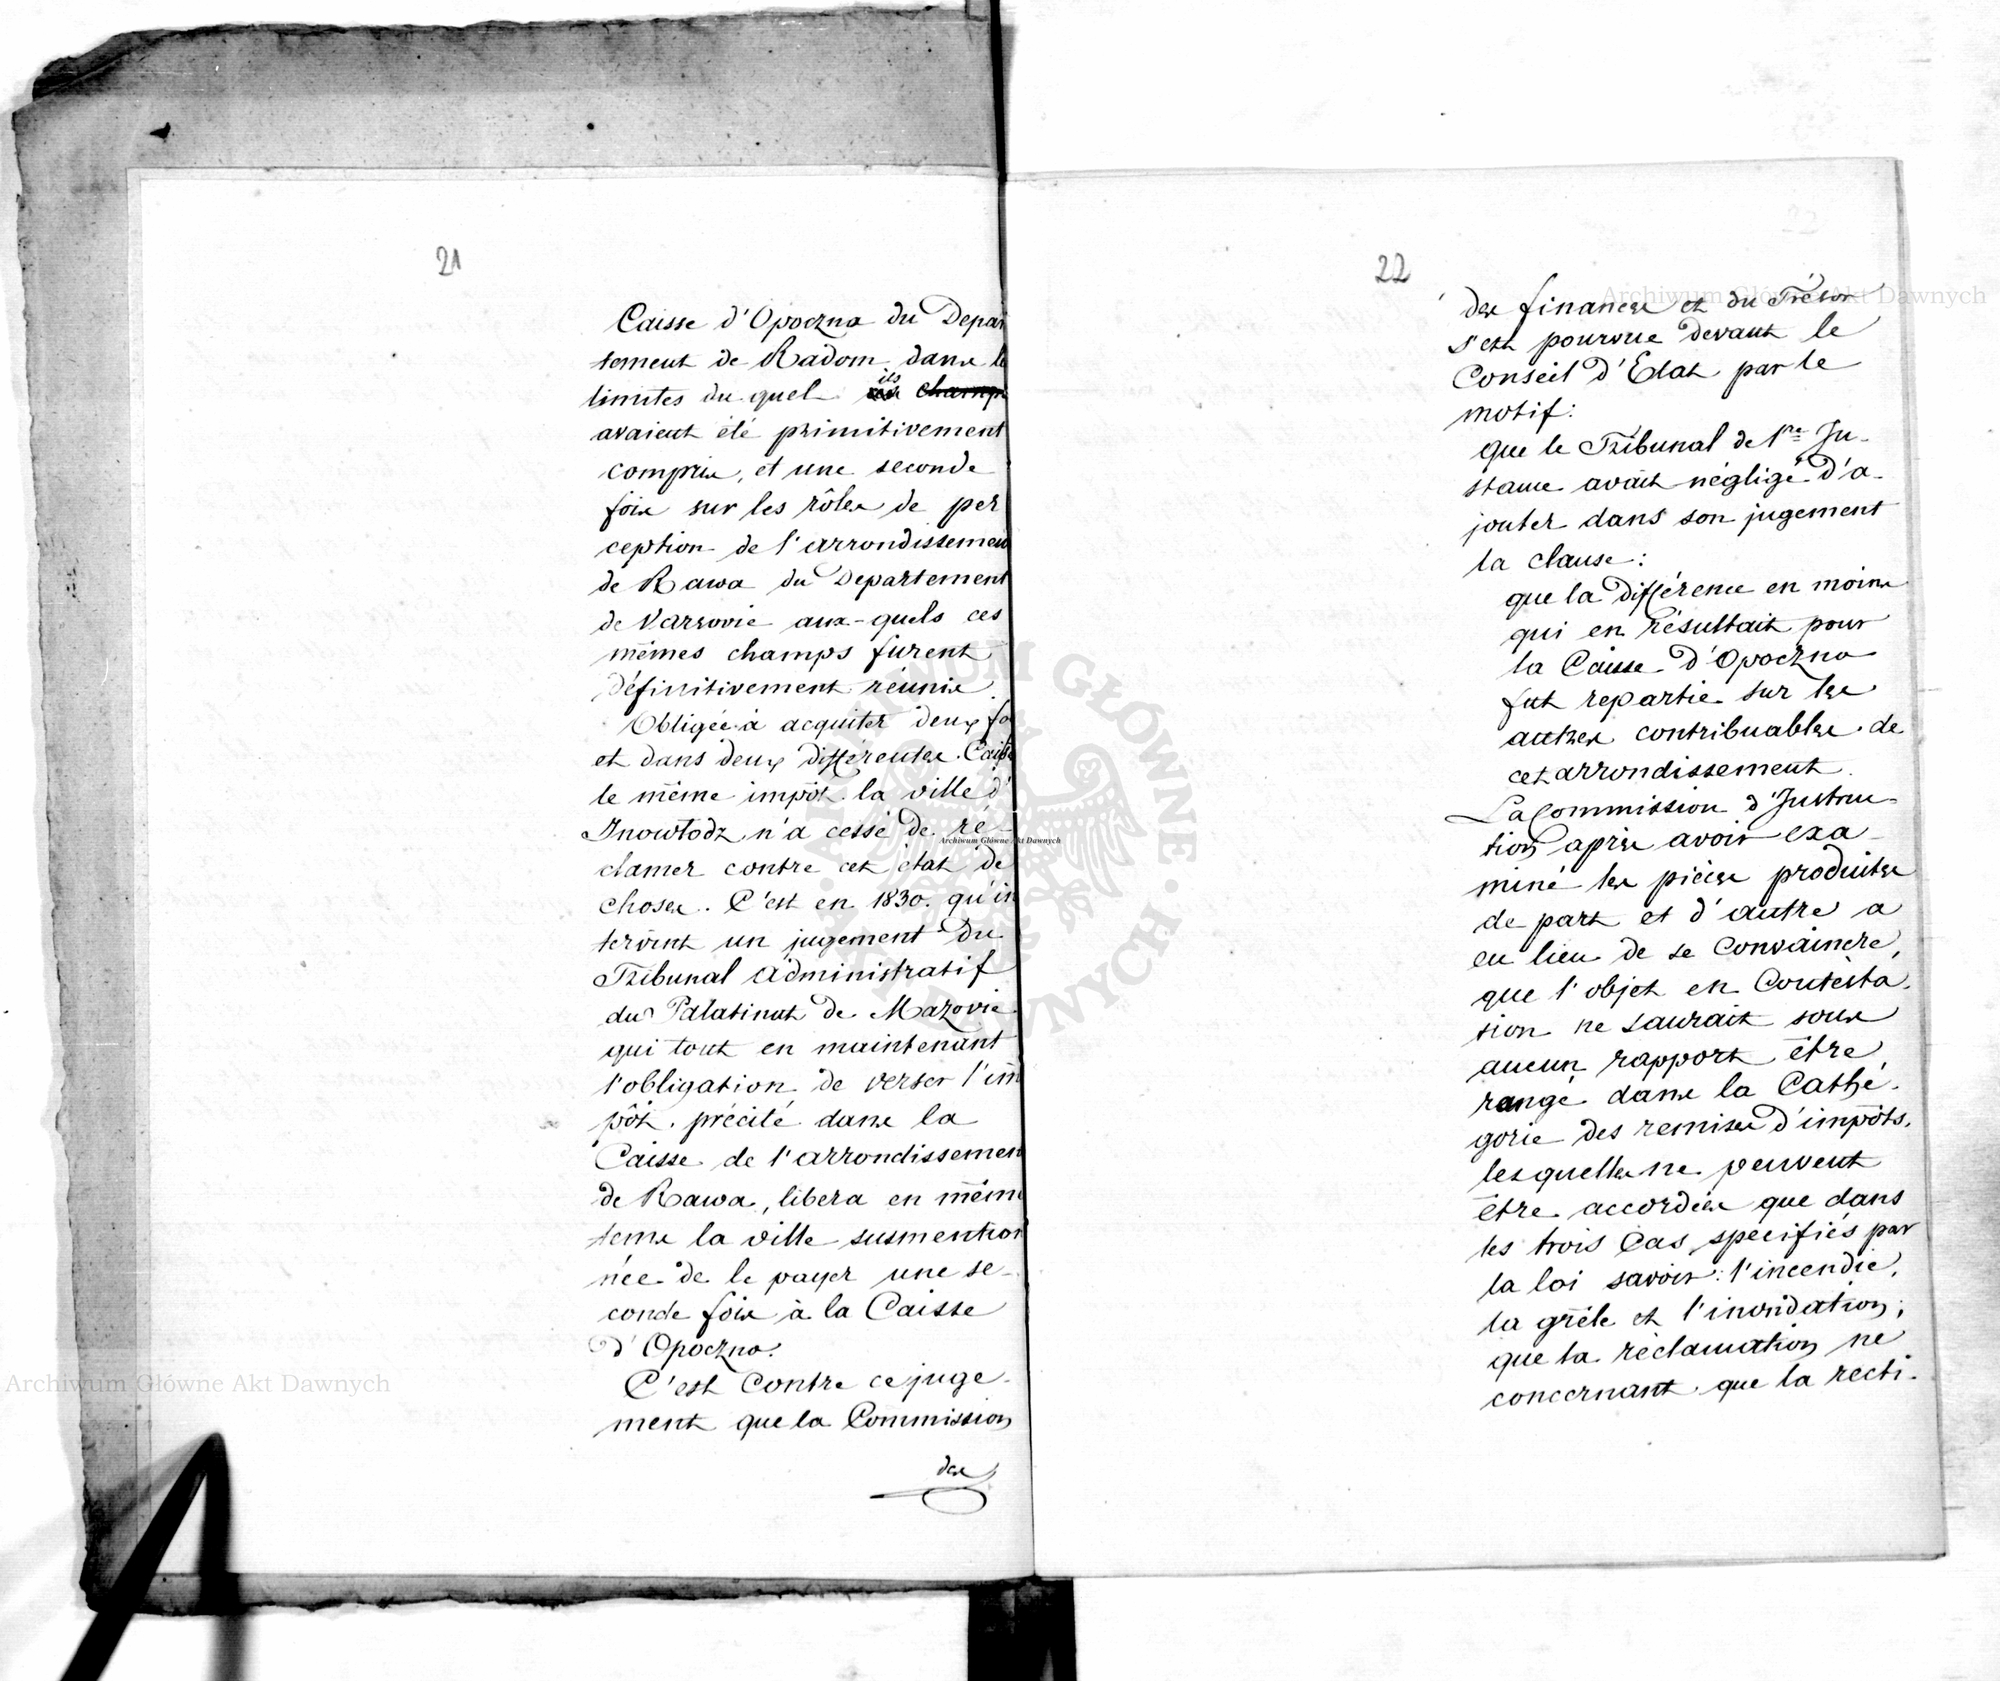 21
Caisse d'Opoczno du Depar
tement de Radom dans le
limites du quel ils champs
avaient été primitivement
compris, et une seconde
fois sur les rôles de per
ception de l'arrondissemen
de Rawa du Departement
de Varsovie aux-quels ces
mêmes champs furent
définitivement réunis.
Obligée à acquiter deux fo
et dans deux différentes Caiss
le même impôt la ville d'
Inowłodz n'a cessé de ré-
clamer contre cet état de
choses. C'est en 1830. qu'in
tervint un jugement du
Tribunal administratif
du Palatinat de Mazovie
qui tout en maintenant
l'obligation de verser l'im
pôt précité dans la
Caisse de l'arrondissemen
de Rawa, libera en mêm
tems la ville susmention
née de le payer une se-
conde fois à la Caisse
d'Opoczno.
C'est contre ce juge-
ment que la Commission
des
22
des finances et du Trésor
s'est pourvue devant le
Conseil d'Etat par le
motif:
que le Tribunal de 1re In-
stance avait négligé d'a-
jouter dans son jugement
la clause:
que la différence en moins
qui en résultait pour
la Caisse d'Opoczno
fut repartie sur les
autres contribuables de
cet arrondissement.
La Commission d'Instruc-
tion après avoir exa-
miné les pièces produites
de part et d'autre a
eu lieu de se convaincre,
que l'objet en Contesta-
tion ne saurait sous
aucun rapport être
rangé dans la Cathé-
gorie des remises d'impôts,
lesquelles ne peuvent
être accordées que dans
les trois Cas specifiés par
la loi savoir: l'incendie,
la grêle et l'inondation;
que la réclamation ne
concernant que la recti-
Archiwum Główne Akt Dawnych
Archiwum Główne Akt Dawnych
Archiwum Główne Akt Dawnych